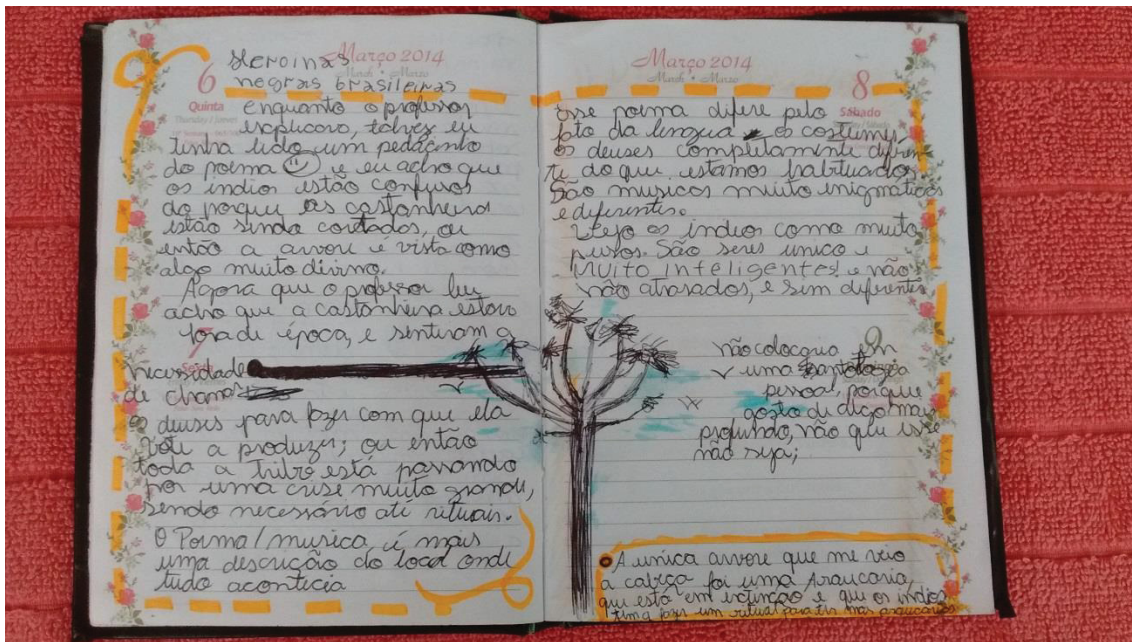 Março 2014
March • Marzo
6
Quinta
Thursday / Jueves
Heroinas
negras brasileiras
enquanto o professor
explicava, talvez eu
tinha lido um pedacinho
do poema e eu acho que
os indios estão confusos
do porque as castanheiras
estão sendo cortados, ou
então a arvore é vista como
algo muito divino.
Agora que o professor leu
acho que a castanheira estava
fora de época, e sentiram a
7
necessidade
de chamar
os deuses para fazer com que ela
volte a produzir; ou então
toda a tribo está passando
por uma crise muito grande,
sendo necessário até rituais.
O Poema/musica é mais
uma descrição do local onde
tudo acontecia
Março 2014
March • Marzo
8
Sábado
Esse poema difere pelo
fato da lingua os costumes
os deuses completamente diferen
te do que estamos habituados
São musicos muito enigmáticos
e diferentes.
Vejo os índios como muito
puros. São seres unico e
muito inteligentes! e não
não atrasados, e sim diferentes
9
não colocaria em
uma antologia
pessoal, porque
gosto de algo mais
profundo, não que esse
não seja;
A unica arvore que me veio
a cabeça foi uma Araucaria,
que está em extinção e que os indios
fazer um ritual para ter mas araucarias